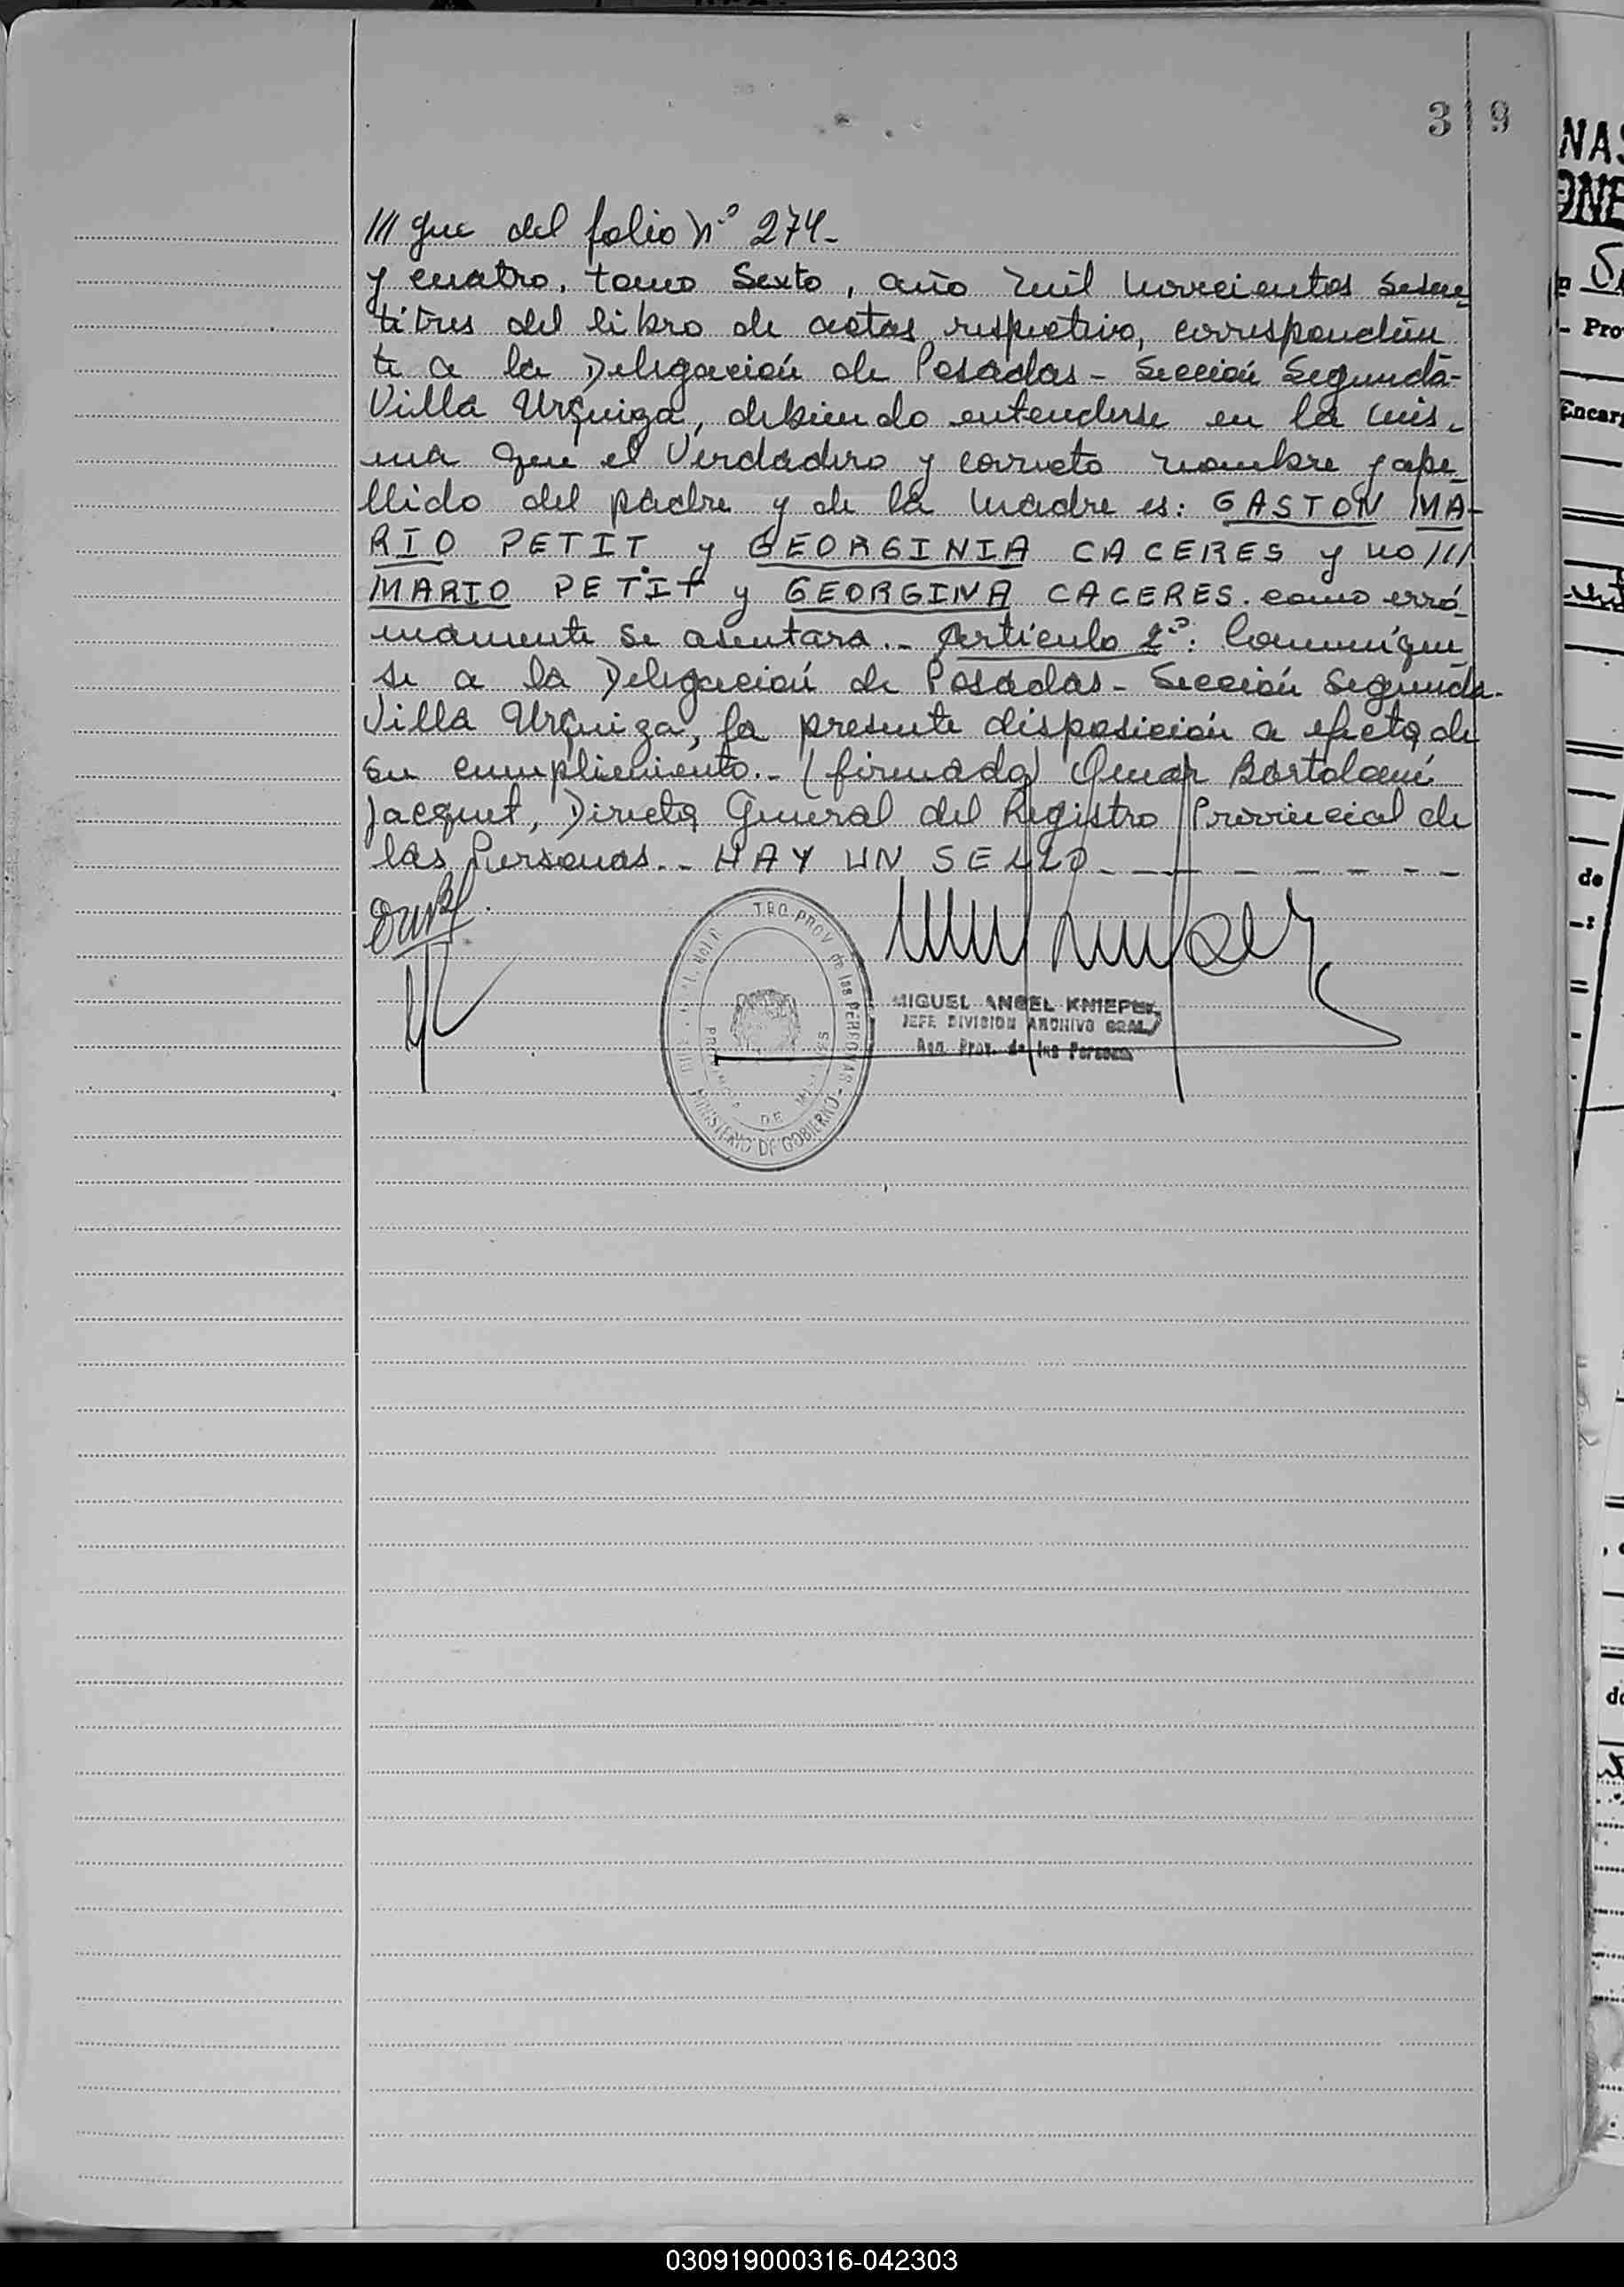 319
/// gue del folio Nº 274-
y cuatro, tomo Sexto, año mil novecientos sesen
titres del libro de actas respectivo, correspondien
te a la Delegación de Posadas - Sección Segunda-
Villa Urquiza, debiendo entenderse en la mis-
ma que el verdadero y correcto nombre y ape
llido del padre y de la madre es: GASTON MA-
RIO PETIT y GEORGINIA CACERES y no ///
MARIO PETIT y GEORGINA CACERES. como erró
neamente se asentara.- Artículo 2º: Comuníque
se a la Delegación de Posadas - Sección Segunda-
Villa Urquiza, la presente disposición a efecto de
su cumplimiento.- (firmado) Omar Bartolomé
Jacquet, Director General del Registro Provincial de
las Personas.- HAY UN SELLO - - - - - - - -
TRO. PROV. de las PERSONAS - MINISTERIO DE GOBIERNO
PROVINCIA DE MISIONES
MIGUEL ANGEL KNIEPER
JEFE DIVISION ARCHIVO GRAL
Reg. Prov. de las Personas
NAS
ONE
Pro
Encar
de
030919000316-042303